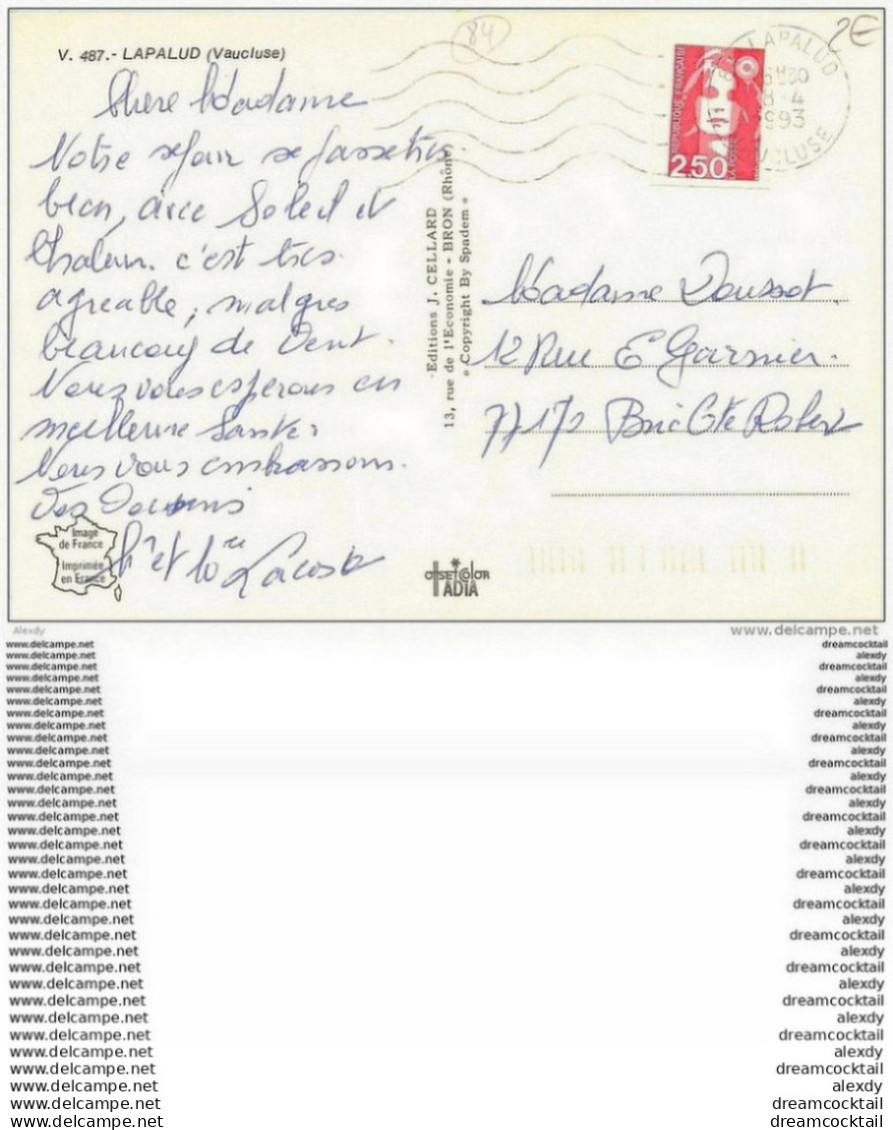 V. 487.- LAPALUD (Vaucluse)
84
2€
LAPALUD
8-4
1993
VAUCLUSE
REPUBLIQUE FRANÇAISE
LA POSTE
2,50
Chere Madame
Notre sejour se passe tres
bien, avec Soleil et
Chaleur. c'est tres
agreable, malgres
beaucoup de Vent.
Nous vous esperons en
meilleure Sante.
Nous vous embrassons.
Vos Voisins
Mr et Me Lacoste
Image
de France
Imprimée
en France
Editions J. CELLARD
13, rue de l'Economie - BRON (Rhône)
« Copyright By Spadem »
OFFSET COLOR
ADIA
Madame Doussot
12 Rue E Garnier.
77170 Brie Cte Robert
Alexdy
www.delcampe.net
www.delcampe.net dreamcocktail
www.delcampe.net alexdy
www.delcampe.net dreamcocktail
www.delcampe.net alexdy
www.delcampe.net dreamcocktail
www.delcampe.net alexdy
www.delcampe.net dreamcocktail
www.delcampe.net alexdy
www.delcampe.net dreamcocktail
www.delcampe.net alexdy
www.delcampe.net dreamcocktail
www.delcampe.net alexdy
www.delcampe.net dreamcocktail
www.delcampe.net alexdy
www.delcampe.net dreamcocktail
www.delcampe.net alexdy
www.delcampe.net dreamcocktail
www.delcampe.net alexdy
www.delcampe.net dreamcocktail
www.delcampe.net alexdy
www.delcampe.net dreamcocktail
www.delcampe.net alexdy
www.delcampe.net dreamcocktail
www.delcampe.net alexdy
www.delcampe.net dreamcocktail
www.delcampe.net alexdy
www.delcampe.net dreamcocktail
www.delcampe.net alexdy
www.delcampe.net dreamcocktail
www.delcampe.net alexdy
www.delcampe.net dreamcocktail
www.delcampe.net alexdy
www.delcampe.net dreamcocktail
www.delcampe.net dreamcocktail